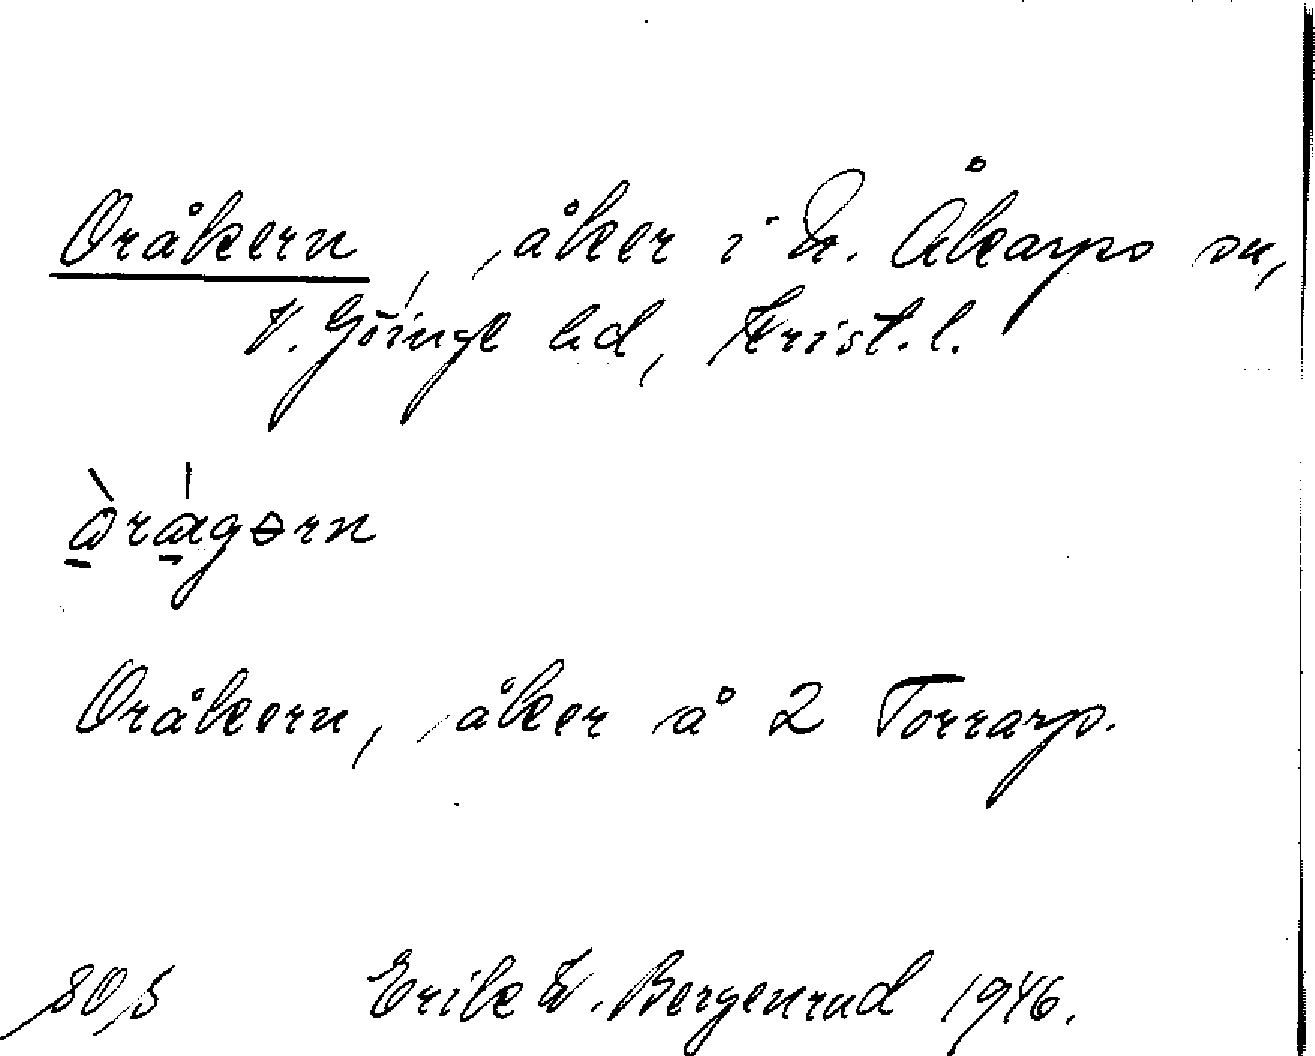 Oråkern, åker i N. Åkarps sn,
V. Göinge hd, Krist. l.
Oråkern, åker å 2 Torrarp.
Erik W. Bergenrud 1946.